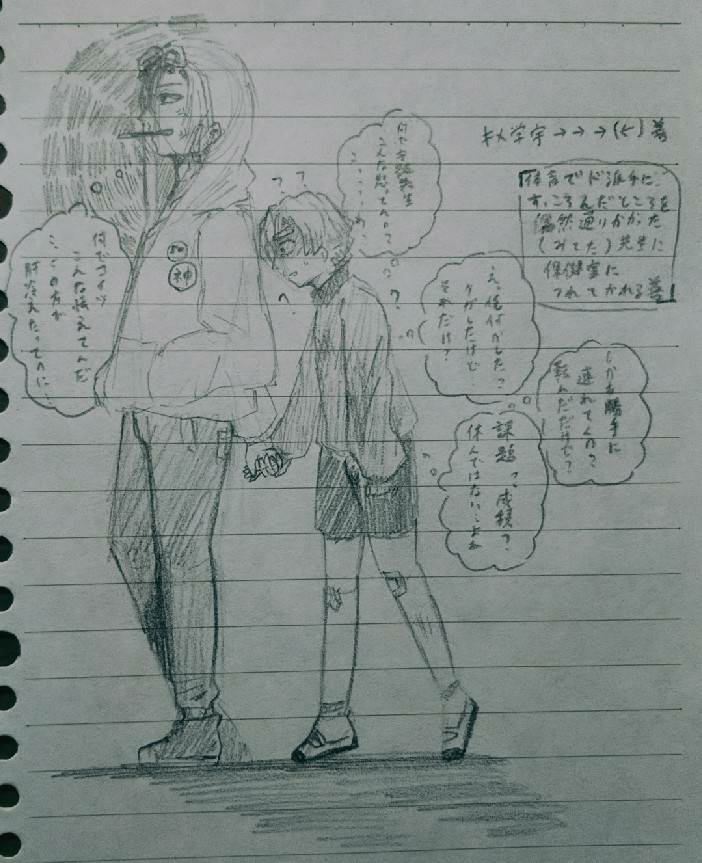 キメ学宇→→→(←)善
体育でド派手に
すっころんだところを
偶然通りかかった
(みてた)先生に
保健室に
つれてかれる善
何で宇髄先生
こんな怒ってんの?
何でコイツ
こんな怯えてんだ
…この方が
肝冷えたってのに…
神
え、俺何かした?
ケガしたけど…
それだけ?
しかも勝手に
連れてくの?
転んだだけで?
課題?成績?
休んではない…よね
?
?
?
?